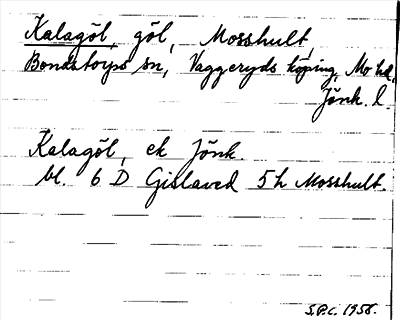 Kalagöl, göl, Mosshult,
Bondstorps sn, Vaggeryds köping, Mo hd,
Jönk. l.
Kalagöl, ek Jönk.
bl. 6 D Gislaved 5 h Mosshult.
S.P.C. 1958.